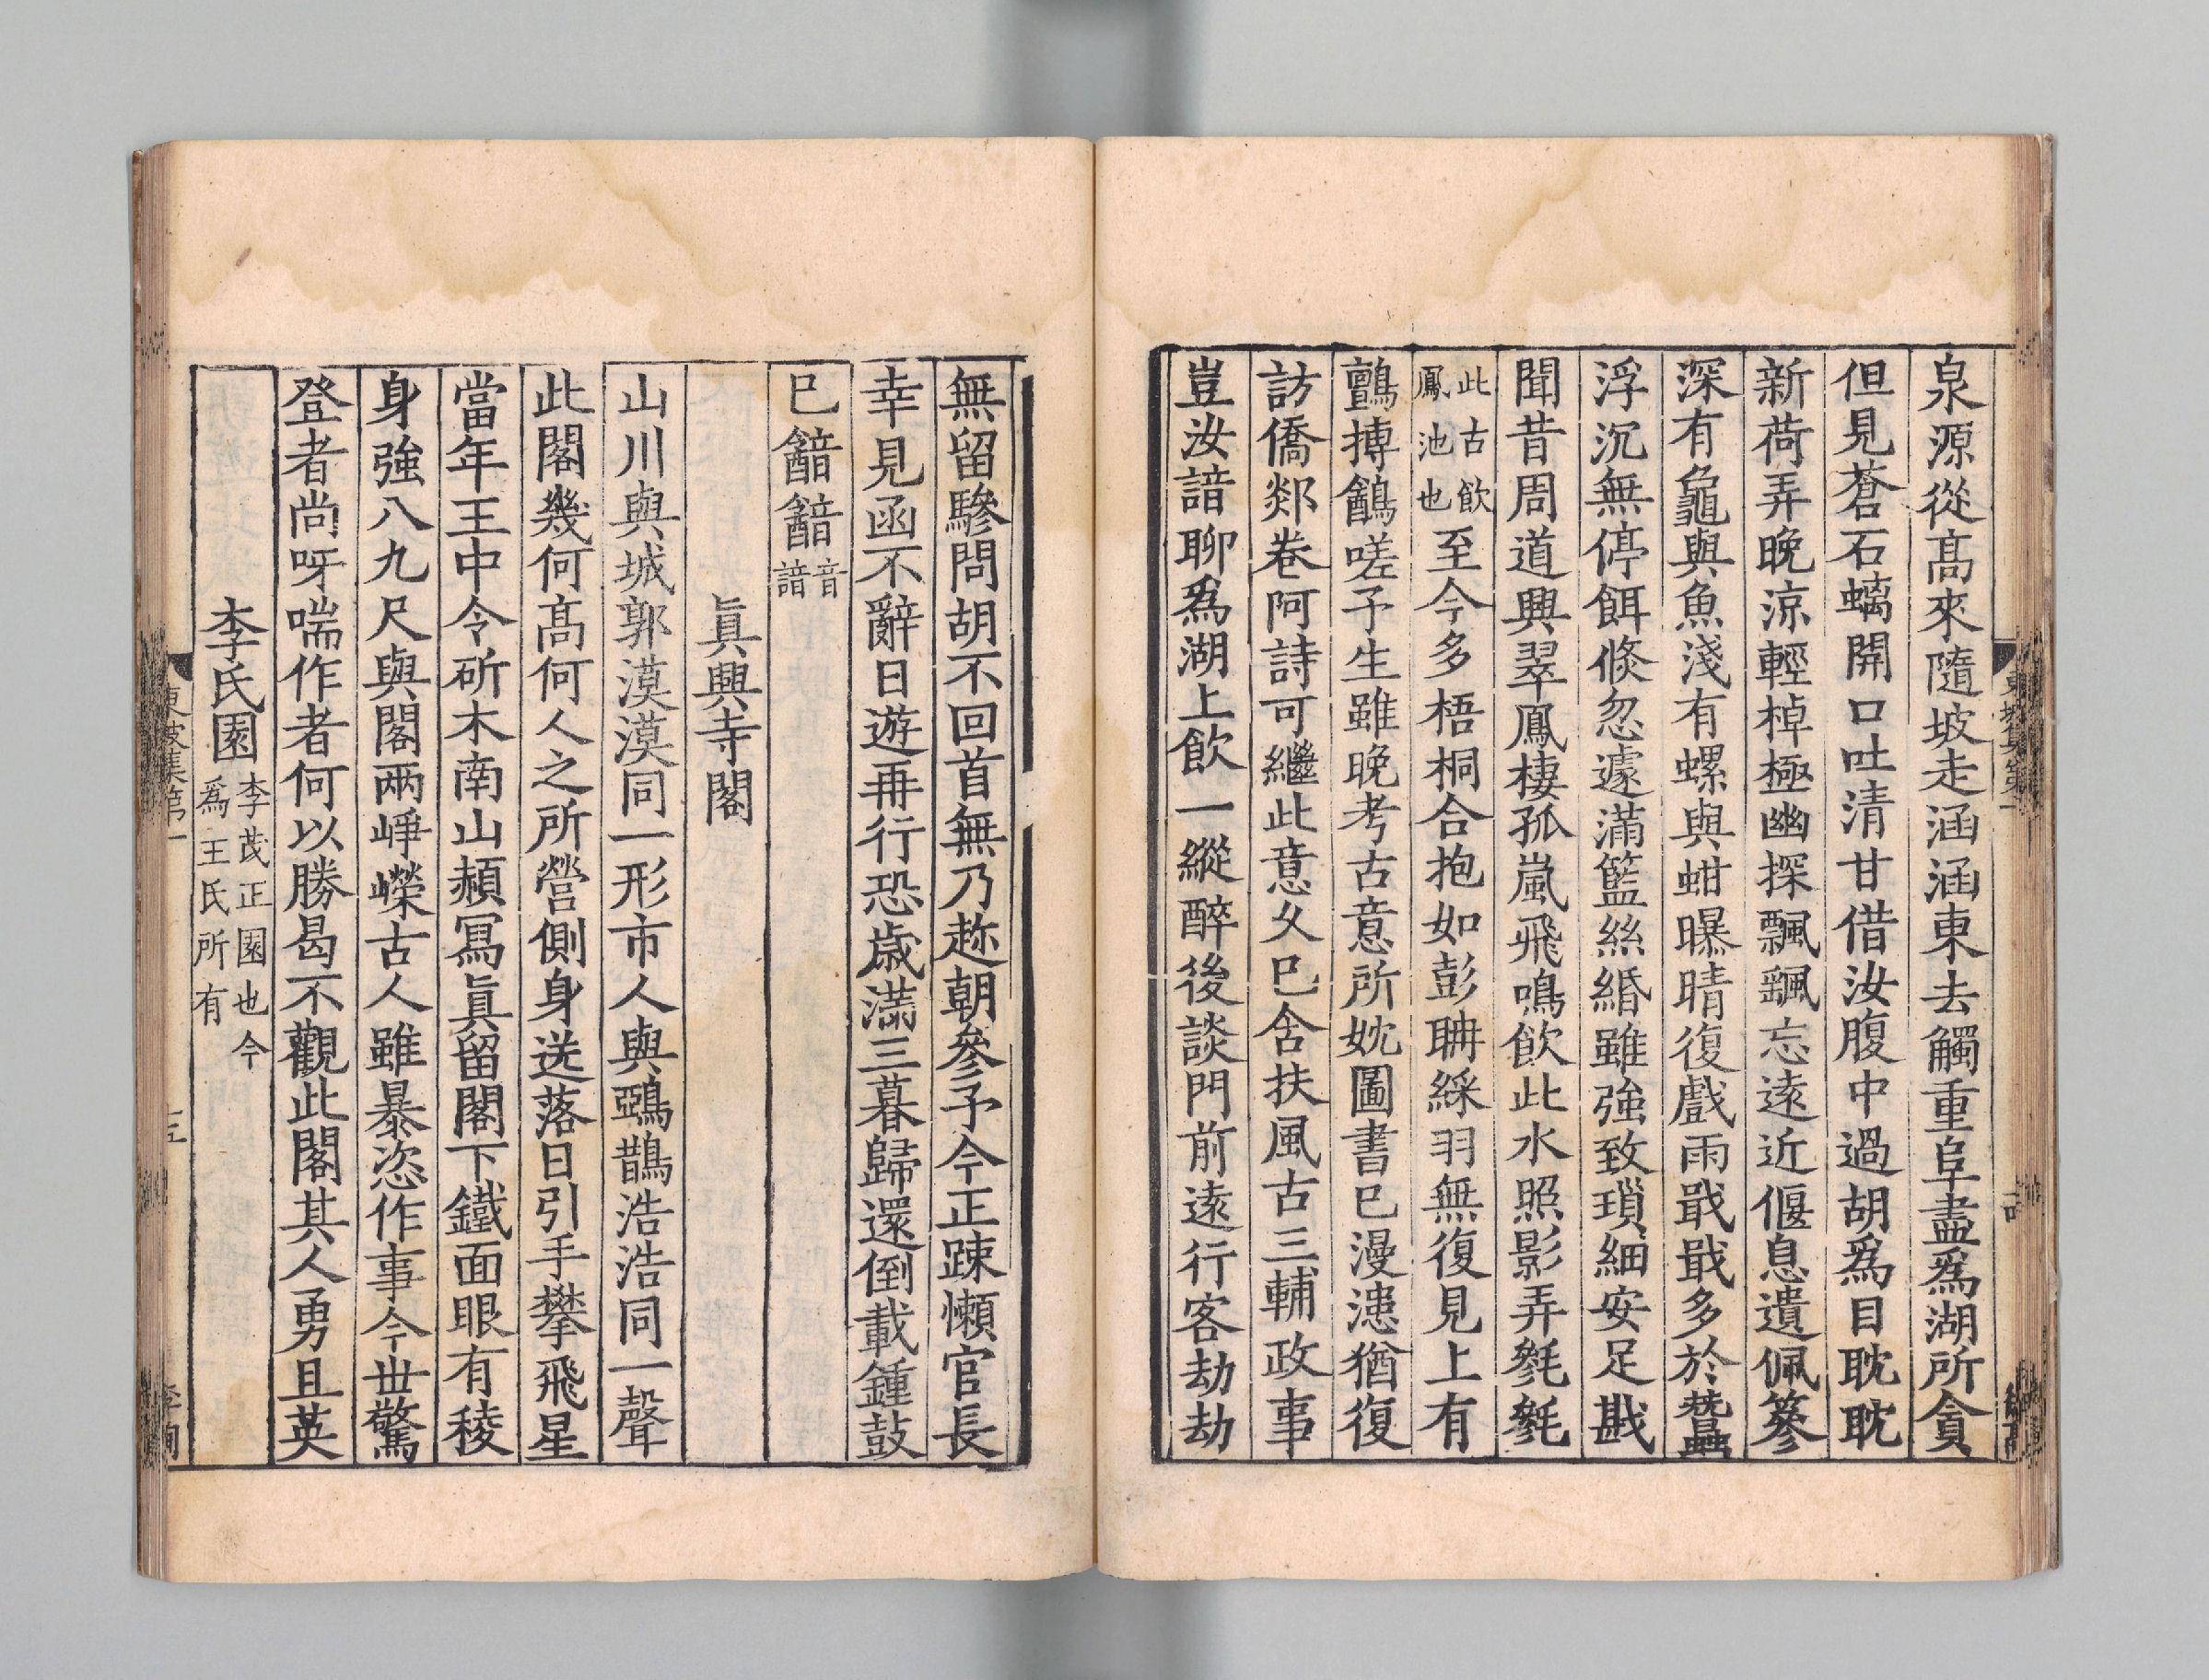 東坡集第一
泉源從髙來隨坡走涵涵東去觸重阜盡爲湖所貪
但見蒼石螭開口吐清甘借汝腹中過胡爲目耽耽
新荷弄晚涼輕棹極幽探飄飃忘逺近偃息遺佩篸
深有龜與魚淺有螺與蚶曝晴復戲雨戢戢多於蠶
浮沉無停餌倐忽遽滿籃絲緡雖強致瑣細安足戡
聞昔周道興翠鳳棲孤嵐飛鳴飲此水照影弄毿毿
此古飲鳳池也至今多梧桐合抱如彭聃綵羽無復見上有
鸇搏䳺嗟予生雖晚考古意所妉圖書已漫漶猶復
訪僑郯卷阿詩可繼此意久已含扶風古三輔政事
豈汝諳聊爲湖上飲一縱醉後談門前逺行客劫劫
無留驂問胡不回首無乃趂朝參予今正踈懶官長
幸見函不辭日遊再行恐歲滿三暮歸還倒載鍾鼓
已韽韽音諳
眞興寺閣
山川與城郭漠漠同一形市人與鵶鵲浩浩同一聲
此閣幾何髙何人之所營側身送落日引手攀飛星
當年王中令斫木南山赬冩眞留閣下鐵面眼有稜
身強八九尺與閣兩崢嶸古人雖暴恣作事今世驚
登者尚呀喘作者何以勝曷不觀此閣其人勇且英
李氏園李茂正園也今爲王氏所有
東坡集第一